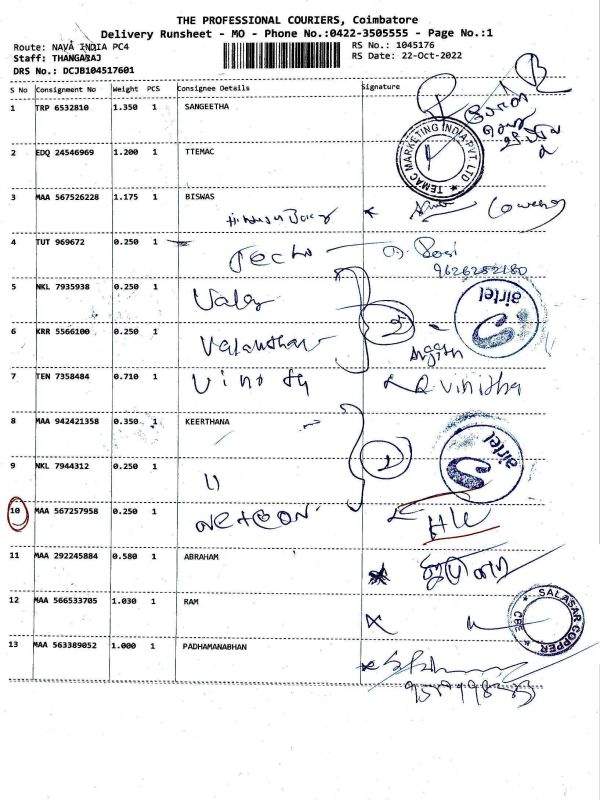 THE PROFESSIONAL COURIERS, Coimbatore
Delivery Runsheet - MO - Phone No.:0422-3505555 - Page No.:1
Route: NAVA INDIA PC4
RS No.: 1045176
Staff: THANGARAJ
RS Date: 22-Oct-2022
DRS No.: DCJB104517601
S No Consignment No Weight PCS Consignee Details Signature
1 TRP 6532810 1.350 1 SANGEETHA
TEMAC MARKETING INDIA PVT. LTD
2 EDQ 24546969 1.200 1 TTEMAC
3 MAA 567526228 1.175 1 BISWAS
4 TUT 969672 0.250 1 Techo
9626252180
5 NKL 7935938 0.250 1
airtel
6 KRR 5566100 0.250 1
7 TEN 7358484 0.710 1 Vinoth Rvinitha
8 MAA 942421358 0.350 1 KEERTHANA
airtel
9 NKL 7944312 0.250 1 11
10 MAA 567257958 0.250 1
11 MAA 292245884 0.580 1 ABRAHAM
12 MAA 566533705 1.030 1 RAM
SALASAR COPPER CBE
13 MAA 563389052 1.000 1 PADHAMANABHAN